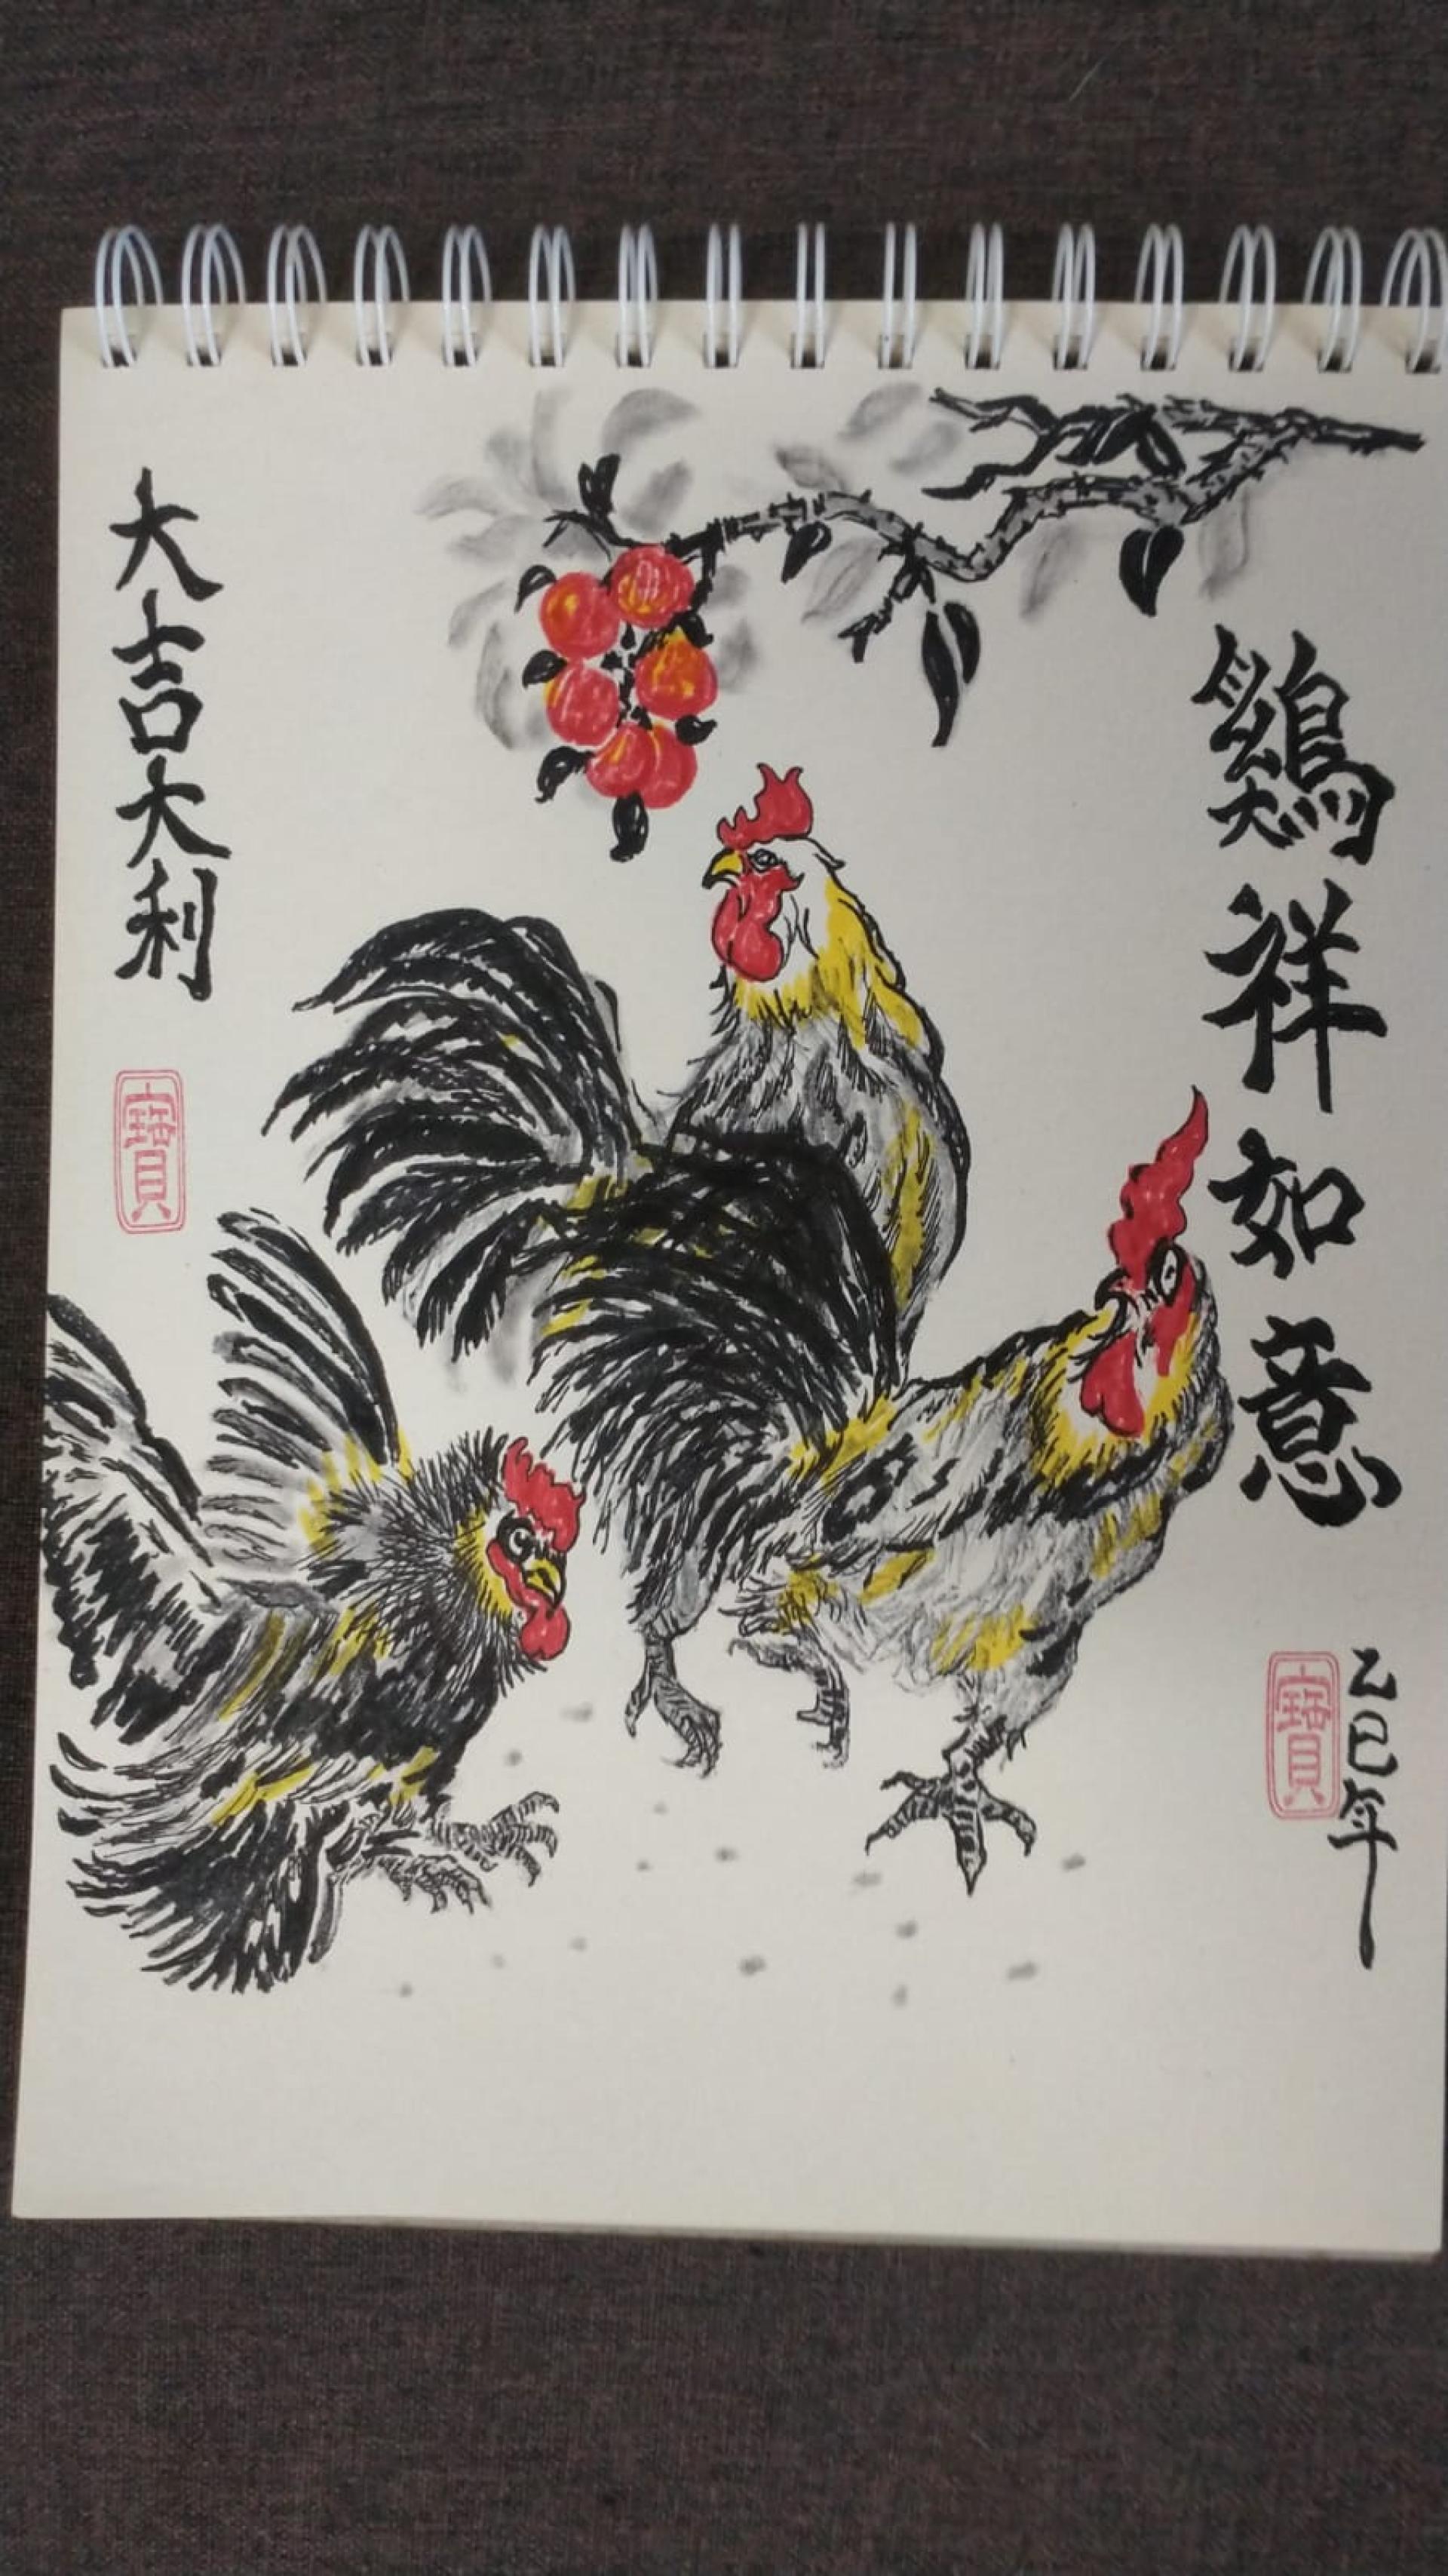 鷄祥如意
乙巳年
寶
大吉大利
寶